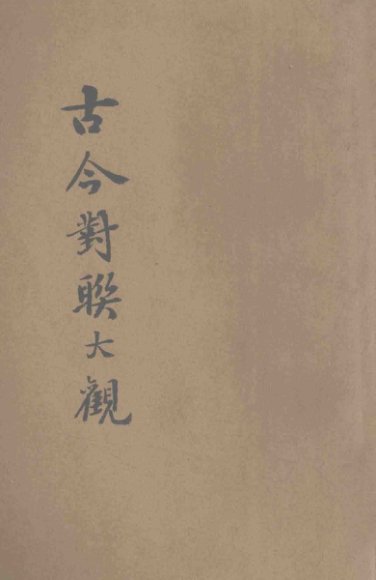 古今對聯大觀